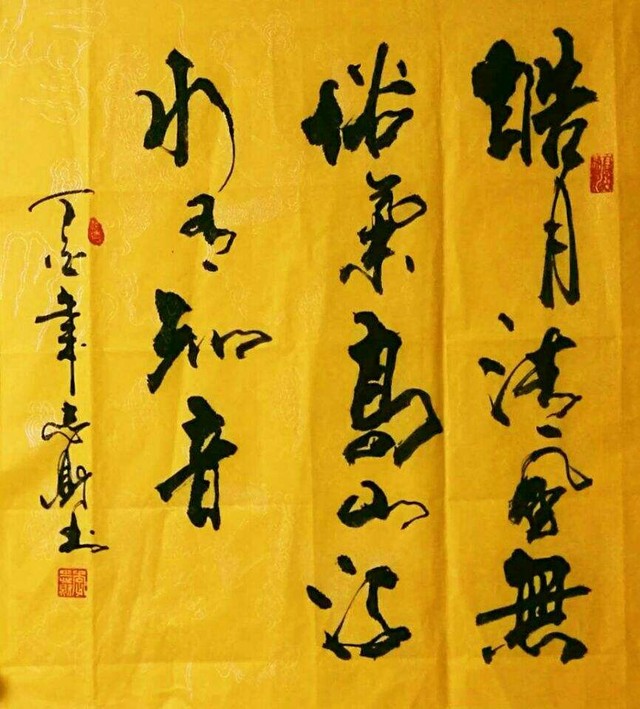 皓月清風無
俗氣高山流
水有知音
丁酉年志財书